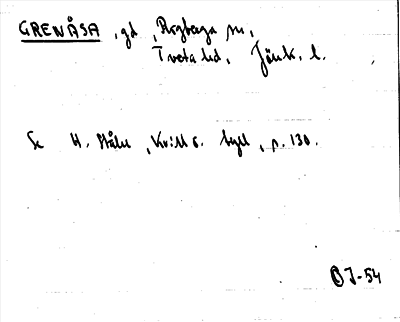 GRENÅSA, gd, Rogberga sn,
Tveta hd, Jönk. l.
Se H. Ståhl, Kvill o. byll, p. 130.
BJ-54